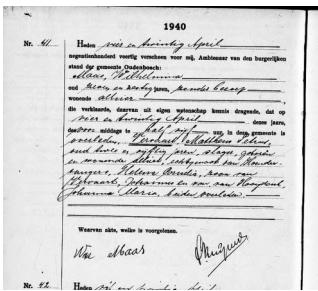 1940
Nr. 41. Heden vier en twintig April
negentienhonderd veertig verscheen voor mij, Ambtenaar van den burgerlijken
stand der gemeente Oudenbosch:
Maas, Wilhelmina
oud zeven en zestig jaren, zonder beroep
wonende alhier
die verklaarde, daarvan uit eigen wetenschap kennis dragende, dat op
vier en twintig April dezes jaars,
des voor middags te half vijf uur, in deze gemeente is
overleden, Mattheus Petrus,
oud twee en vijftig jaren, slager, geboren
en wonende alhier, echtgenoot van
Helena Cornelia, zoon van
Johannes en van van
Johanna Maria, beiden overleden.
Waarvan akte, welke is voorgelezen.
Maas
Nr. 42. Heden vier en twintig April